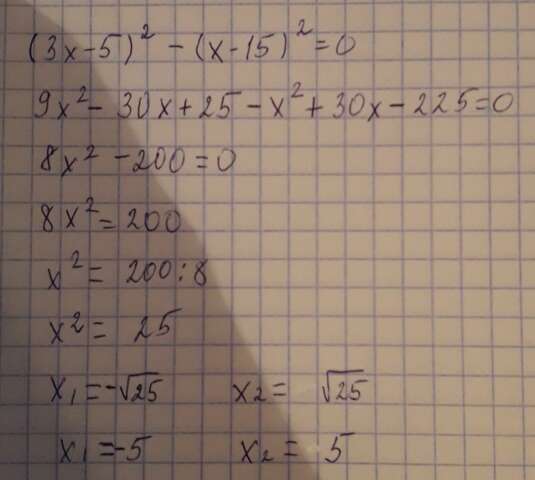 (3x-5)² - (x-15)² = 0
9x² - 30x + 25 - x² + 30x - 225 = 0
8x² - 200 = 0
8x² = 200
x² = 200 : 8
x² = 25
x₁ = -√25 x₂ = √25
x₁ = -5 x₂ = 5